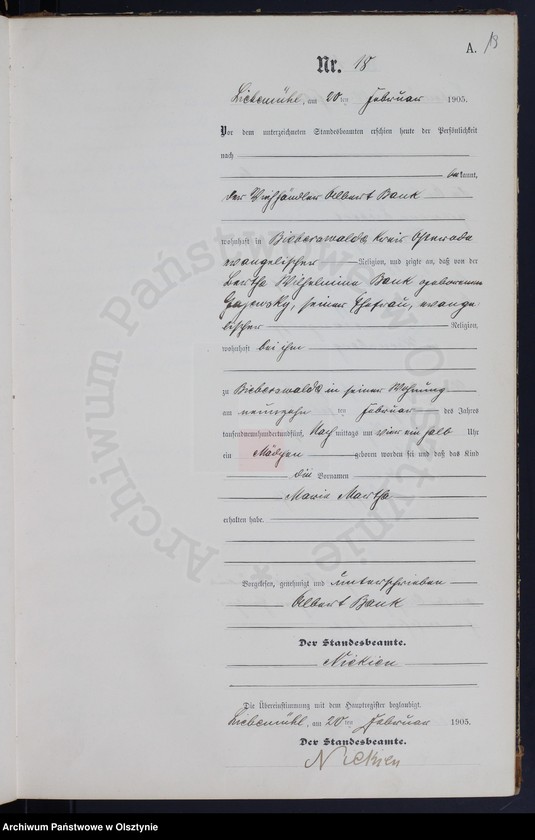 A. 18
Nr. 18
Liebemühl, am 20 ten Februar 1905.
Vor dem unterzeichneten Standesbeamten erschien heute der Persönlichkeit
nach
bekannt,
der Viehhändler Albert Bank
wohnhaft in Bieberswalde Kreis Osterode
evangelischer Religion, und zeigte an, daß von der
Bertha Wilhelmine Bank geborenen
Gayewsky, seiner Ehefrau, evange-
lischer Religion,
wohnhaft bei ihm
zu Bieberswalde in seiner Wohnung
am neunzehn ten Februar des Jahres
tausendneunhundertundfünf, Nachmittags um vier ein halb Uhr
ein Mädchen geboren worden sei und daß das Kind
die Vornamen
Marie Martha
erhalten habe.
Vorgelesen, genehmigt und unterschrieben
Albert Bank
Der Standesbeamte.
Nickien
Die Übereinstimmung mit dem Hauptregister beglaubigt.
Liebemühl, am 20 ten Februar 1905.
Der Standesbeamte.
Nickien
Archiwum Państwowe w Olsztynie
Archiwum Państwowe w Olsztynie